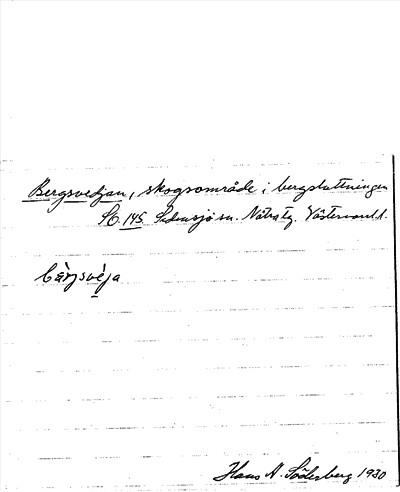 Bergsvedjan, skogsområde i bergsluttningen
S. 145. Sidensjö sn. Nätra tg. Västernorrl.
bàrjsvèja
Hans A. Söderberg 1930